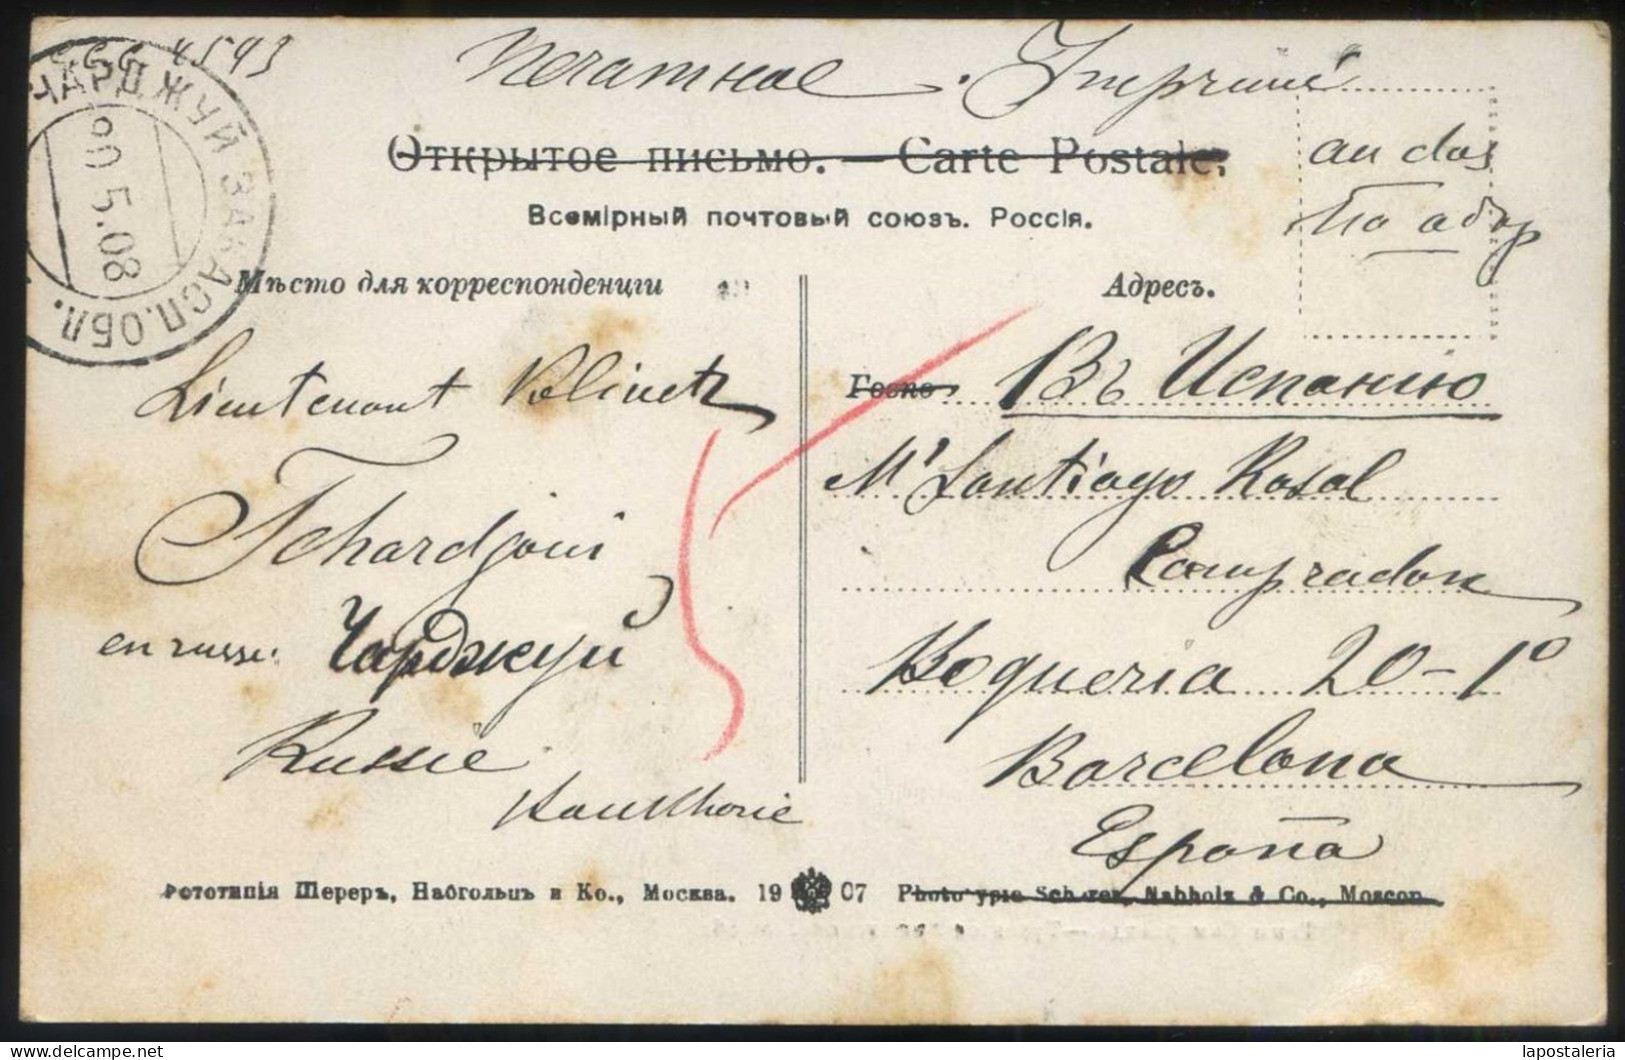 ССС 4543
ЧАРДЖУЙ ЗАКАСП. ОБЛ.
5.08
Печатное. Imprimé
Открытое письмо. — Carte Postale.
au dos
На обор
Всемірный почтовый союзъ. Россія.
Мѣсто для корреспонденціи
Адресъ.
Lieutenant
Tchardjoui
en russe: Чарджуй
Russie
Въ Испанію
Mr Santiago Rosal
Comprador
Boqueria 20-1º
Barcelona
España
Фототипія Шереръ, Набгольцъ и Ко., Москва. 1907 Phototypie Scherer, Nabholz & Co., Moscou.
lapostaleria
delcampe.net